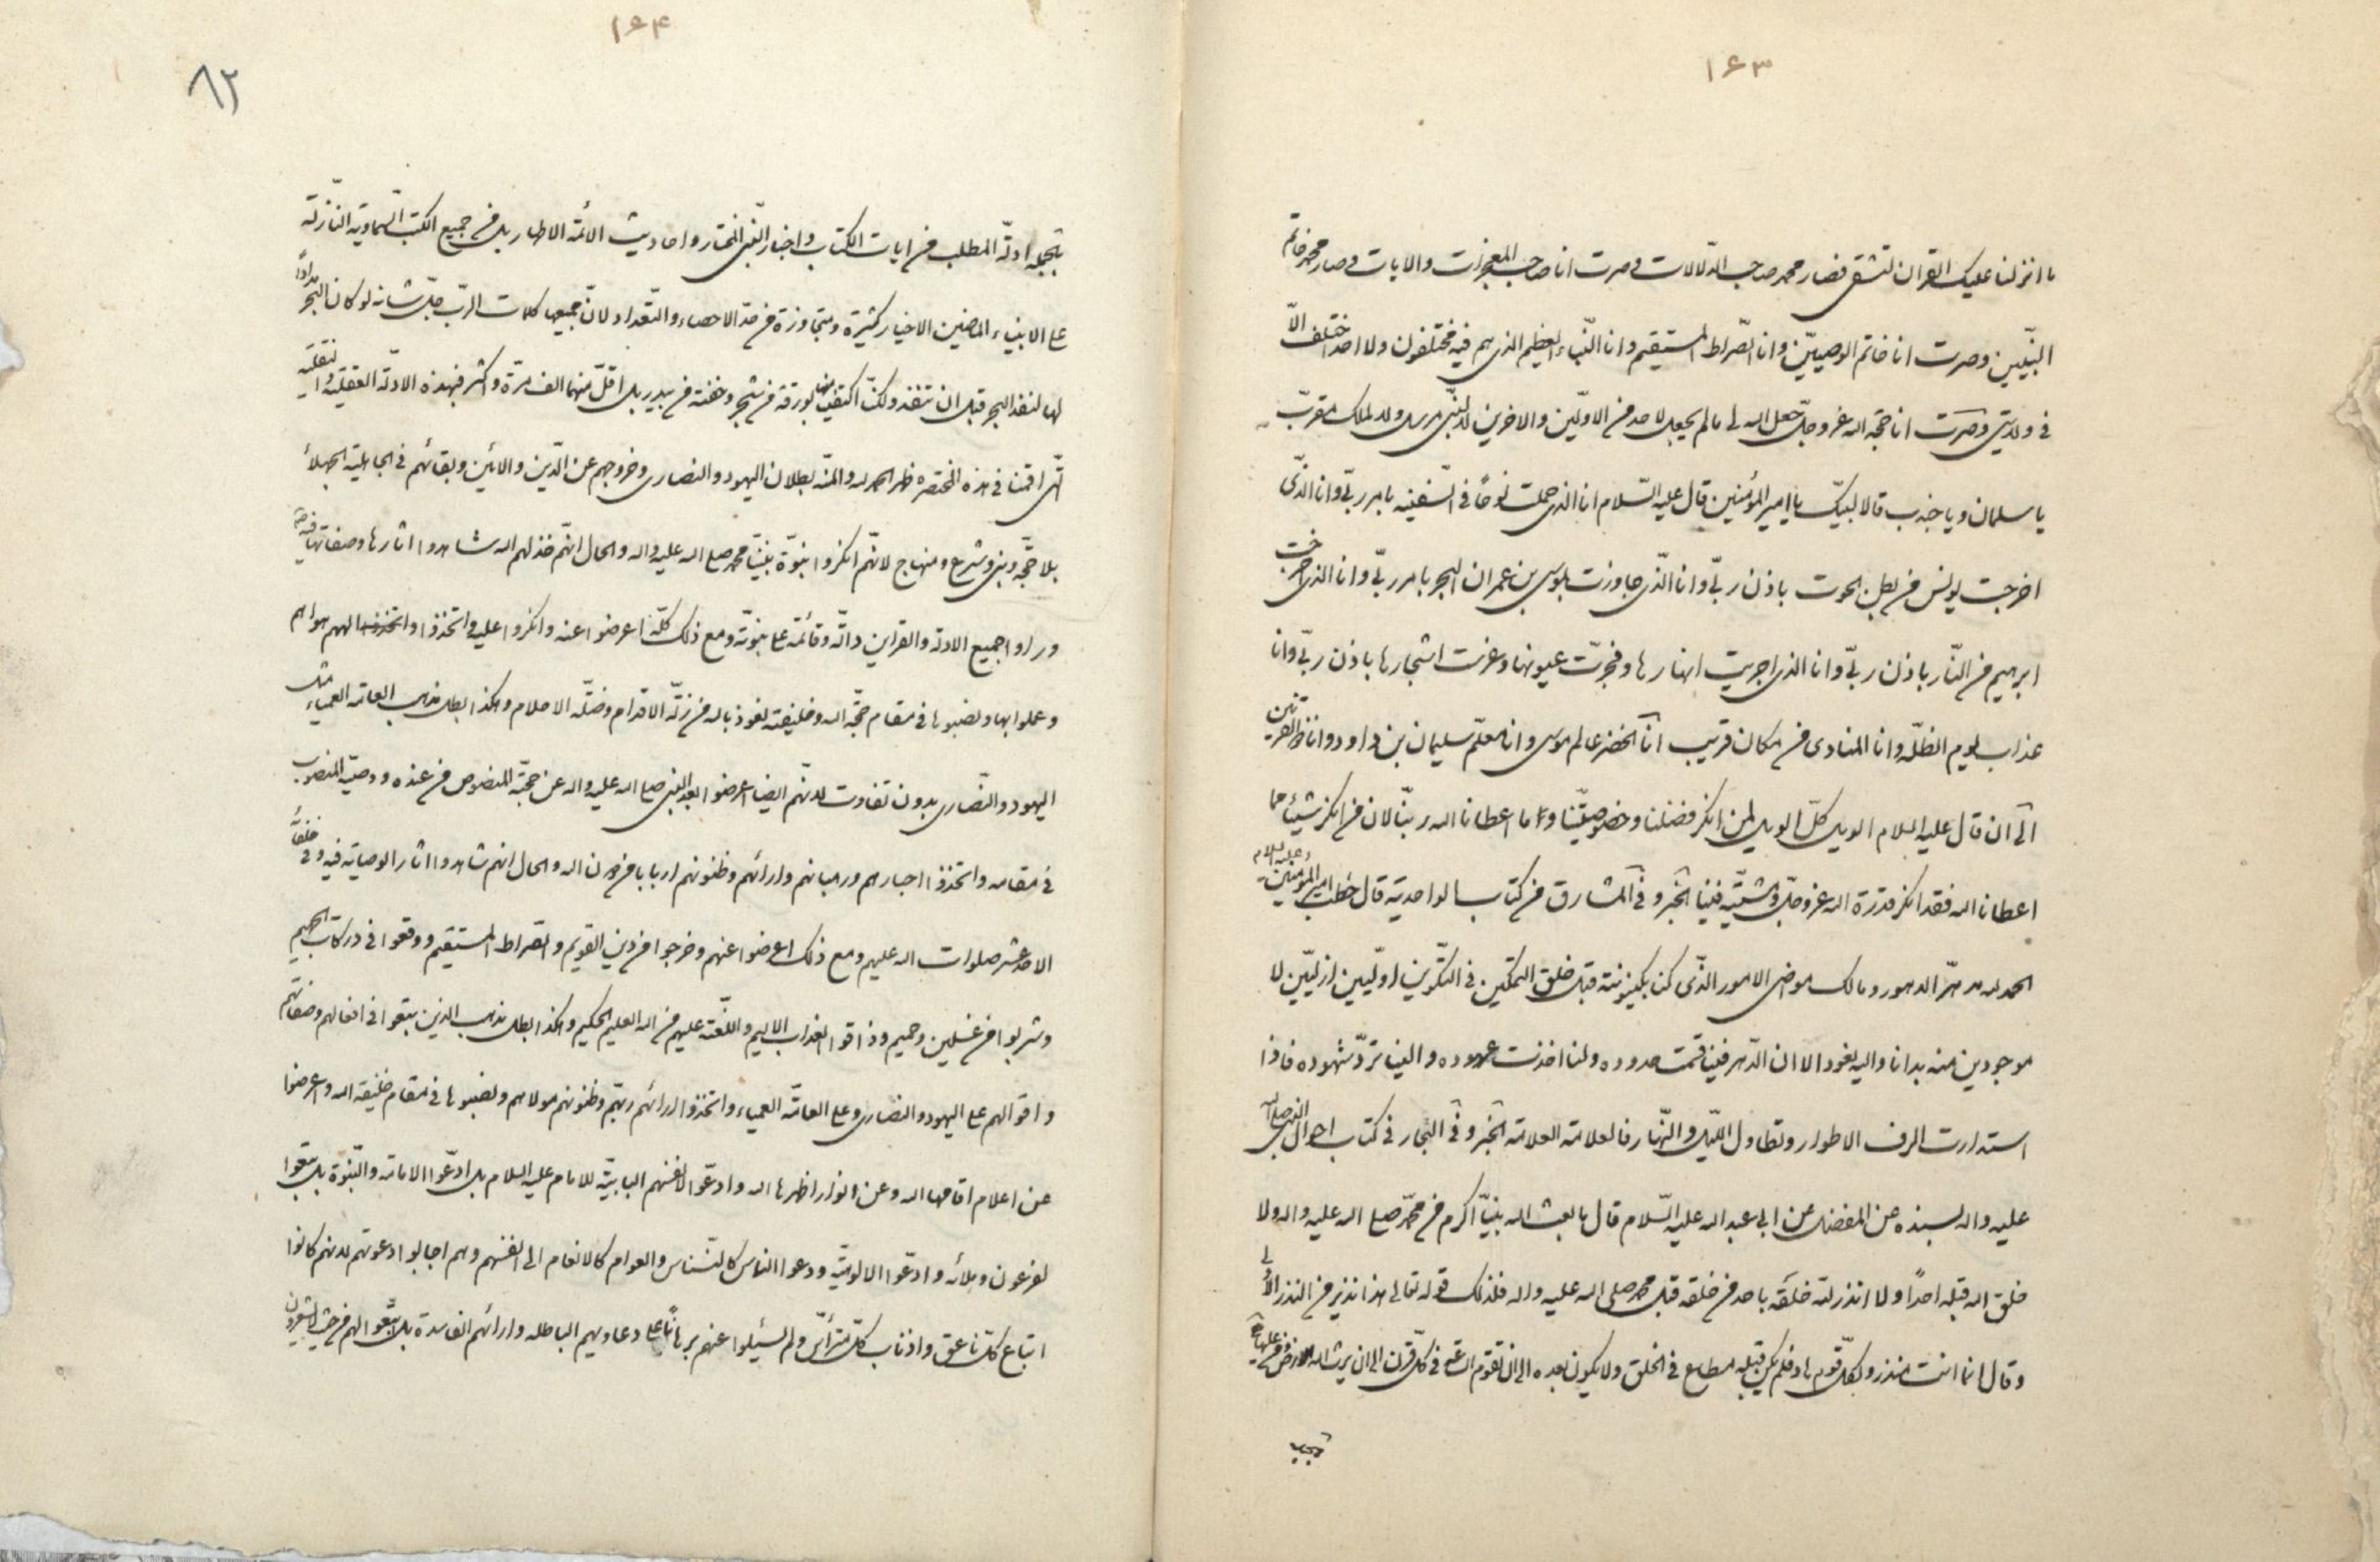 ۱۶۳
ما انزلنا عليك القران لتشقى فصار محمد صاحب الدلالات و صرت انا صاحب المعجزات والايات و صار محمد خاتم
النبيّين وصرت انا خاتم الوصيّين وانا الصّراط المستقيم وانا النّباء العظيم الذى هم فيه مختلفون ولا احد اختلف الّا
فى ولايتى وصرت انا حجّة الله عزوجلّ جعل الله لى ما لم يجعل لاحد من الاوّلين والاخرين لا لنبى مرسل ولا لملك مقرّب
يا سلمان ويا جندب قالا لبيّك يا امير المؤمنين قال عليه السّلام انا الذى حملت نوحاً فى السّفينه بامر ربّى وانا الذّى
اخرجت يونس من بطن الحوت باذن ربّى وانا الذّى جاوزت بموسى بن عمران البحر بامر ربّى وانا الذى اخرجت
ابرهيم من النّار باذن ربّى وانا الذى اجريت انهارها وفجّرت عيونها وغرست اشجارها باذن ربّى وانا
عذاب يوم الظلّة وانا المنادى من مكان قريب انا الخضر عالم موسى وانا معلّم سليمان بن داود وانا ذو القرنين
الى ان قال عليه السلام الويل كلّ الويل لمن انكر فضلنا وخصوصيّتنا وما اعطانا الله ربّنا لان من انكر شيئاً مما
اعطانا الله فقد انكر قدرة الله عزوجلّ ومشيّته فينا الخبر و فى المشارق من كتاب الواحدية قال خطب امير المؤمنين عليه السلام
الحمد لله مدهر الدهور ومالك مواضى الامور الذّى كنا بكينونته قبل خلق التمكين فى التكوين اوّليّين ازليّين لا
موجودين منه بدانا واليه نعود الا ان الدّهر فينا قسمت حدوده ولنا اخذت عهوده والينا تردّ شهوده فاذا
استدارت الوف الاطوار وتطاول اللّيل والنّهار فالعلامة العلامة الخبر و فى البحار فى كتاب احوال النبى صلى الله
عليه واله بسنده عن المفضل عن ابى عبد الله عليه السّلام قال ما بعث الله نبيّا اكرم من محمّد صلى الله عليه واله ولا
خلق الله قبله احداً ولا انذر لله خلقه باحد من خلقه قبل محمد صلى الله عليه واله فذلك قوله تعالى هذا نذير من النذر الاولى
وقال انما انت منذر ولكلّ قوم هاد فلم يكن قبله مطاع فى الخلق ولا يكون بعده الى ان تقوم السّاعه فى كلّ قرن الى ان يرث الله الارض ومن عليها
۱۶۴
۸۲
ادلّة المطلب من ايات الكتاب واخبار النّبى المختار واحاديث الائمة الاطهار بل من جميع الكتب السّماوية النّازلة
على الانبياء الماضين الاخيار كثيرة ومتجاوزة من حدّ الاحصاء والتّعداد لانّ جميعها كلمات الربّ جلّ شانه لو كان البحر مداداً
لها لنفد البحر قبل ان تنفد ولكنّ اكتفينا منها بورقة من شجر وحفنة من بيدر بل اقلّ منهما الف مرّة واكثر فبهذه الادلّة العقليّة والنقليّة
الّتى اقمنا فى هذه المختصرة ظهر الحمد لله والمنّه بطلان اليهود والنصارى وخروجهم عن الدّين والائين وبقائهم فى الجاهليّة الجهلاء
بلا حجّة ونبى وشرع ومنهاج لانّهم انكروا نبوّة نبيّنا محمد صلى الله عليه واله والحال انهّم خذلهم الله شاهدوا اثارها وصفاتها فيه
وراوا جميع الادلة والقراين دالّة وقائمة على نبوّته ومع ذلك كلّه اعرضوا عنه وانكروا عليه واتخذوا الههم هواهم
وعملوا بها ونصبوها فى مقام حجّة الله وخليفته نعوذ بالله من زلّة الاقدام وضلّة الاحلام وهكذا بطل مذهب العامة العمياء مثل
اليهود والنّصارى بدون تفاوت لانّهم ايضا اعرضوا بعد النبى صلى الله عليه واله عن حجّته المنصوص من عنده ووصيّه المنصوب
فى مقامه واتخذوا احبارهم ورهبانهم وارائهم وظنونهم اربابا من دون الله والحال انهم شاهدوا اثار الوصاية فيه وفى خلفائه
الاحد عشر صلوات الله عليهم ومع ذلك اعرضوا عنهم وخرجوا من دين القويم والصّراط المستقيم ووقعوا فى دركات الجحيم
وشربوا من غسلين وحميم وذاقوا العذاب الاليم واللّعنة عليهم من الله العليم الحكيم وهكذا بطل مذهب الذين تبعوا فى افعالهم وصفاتهم
واقوالهم على اليهود والنصارى وعلى العامّة العمياء واتخذوا ارائهم ربّهم وظنونهم مولاهم ونصبوها فى مقام خليفة الله واعرضوا
عن اعلام اقامها الله وعن انوار اظهرها الله وادعّوا لانفسهم البابيّة للامام عليه السلام بل ادّعوا الامامة والنّبوة بل تبعوا
لفرعون وملائه وادعّوا الالوهيّة ودعوا الناس كالنسناس والعوام كالانعام الى انفسهم وهم اجابوا دعوتهم لانهم كانوا
اتباع كلّ ناعق واذناب كلّ ولم يسئلوا عنهم برهاناً على دعاويهم الباطله وارائهم الفاسدة بل اتّبعوا الهم من حيث لا يشعرون